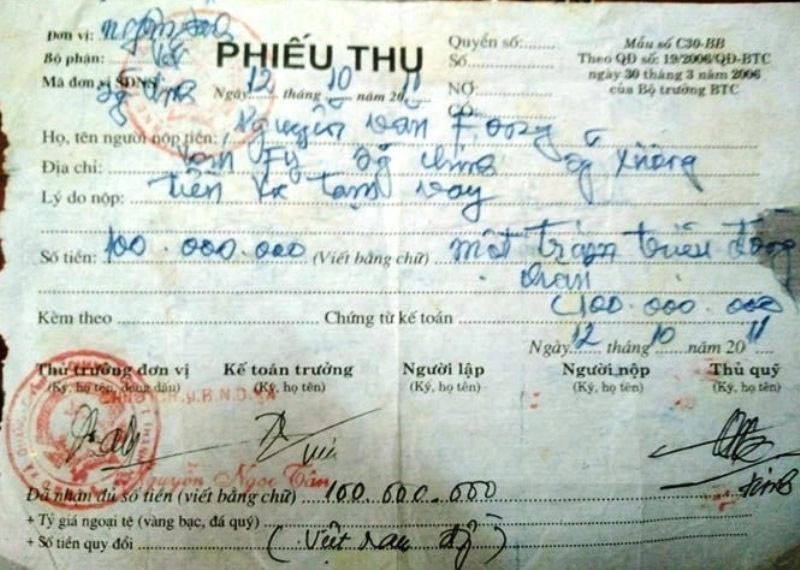 Đơn vị:
Bộ phận:
Mã đơn vị SDNS
PHIẾU THU
Ngày 12 tháng 10 năm 2011
Quyển số:
Số
NỢ
CÓ
Mẫu số C30-BB
Theo QĐ số: 19/2006/QĐ-BTC
ngày 30 tháng 3 năm 2006
của Bộ trưởng BTC
Họ, tên người nộp tiền: Nguyễn Văn
Địa chỉ:
Lý do nộp: tiền xã tạm vay
Số tiền: 100.000.000 (Viết bằng chữ) một trăm triệu đồng
chẵn
(100.000.000
Kèm theo Chứng từ kế toán
Ngày 12 tháng 10 năm 2011
Thủ trưởng đơn vị Kế toán trưởng Người lập Người nộp Thủ quỹ
(Ký, họ tên, đóng dấu) (Ký, họ tên) (Ký, họ tên) (Ký, họ tên) (Ký, họ tên)
Nguyễn Ngọc Tân
Đã nhận đủ số tiền (viết bằng chữ) 100.000.000
+ Tỷ giá ngoại tệ (vàng bạc, đá quý)
+ Số tiền quy đổi (Việt nam đ)